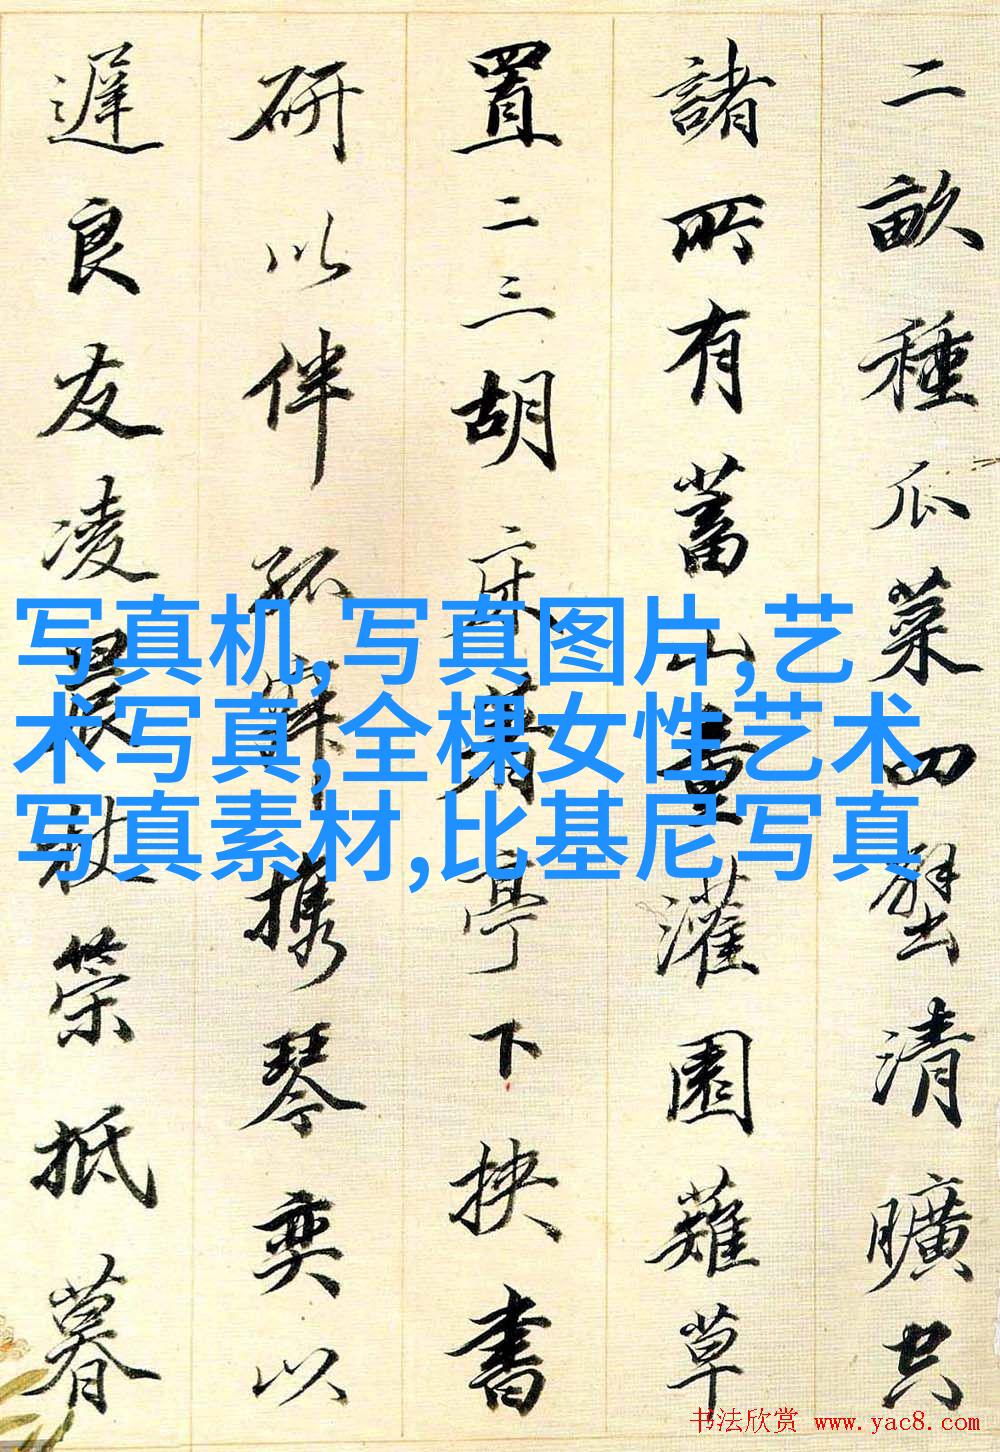 二畝種瓜菜四壁清曠空
諸所有蓄山童灌園薙草
置二三胡床着亭下挟書
研以伴孤寂携琴奕以
遲良友凌晨杖策抵暮
写真机,写真图片,艺
术写真,全棵女性艺术
写真素材,比基尼写真
书法欣赏 www.yac8.com